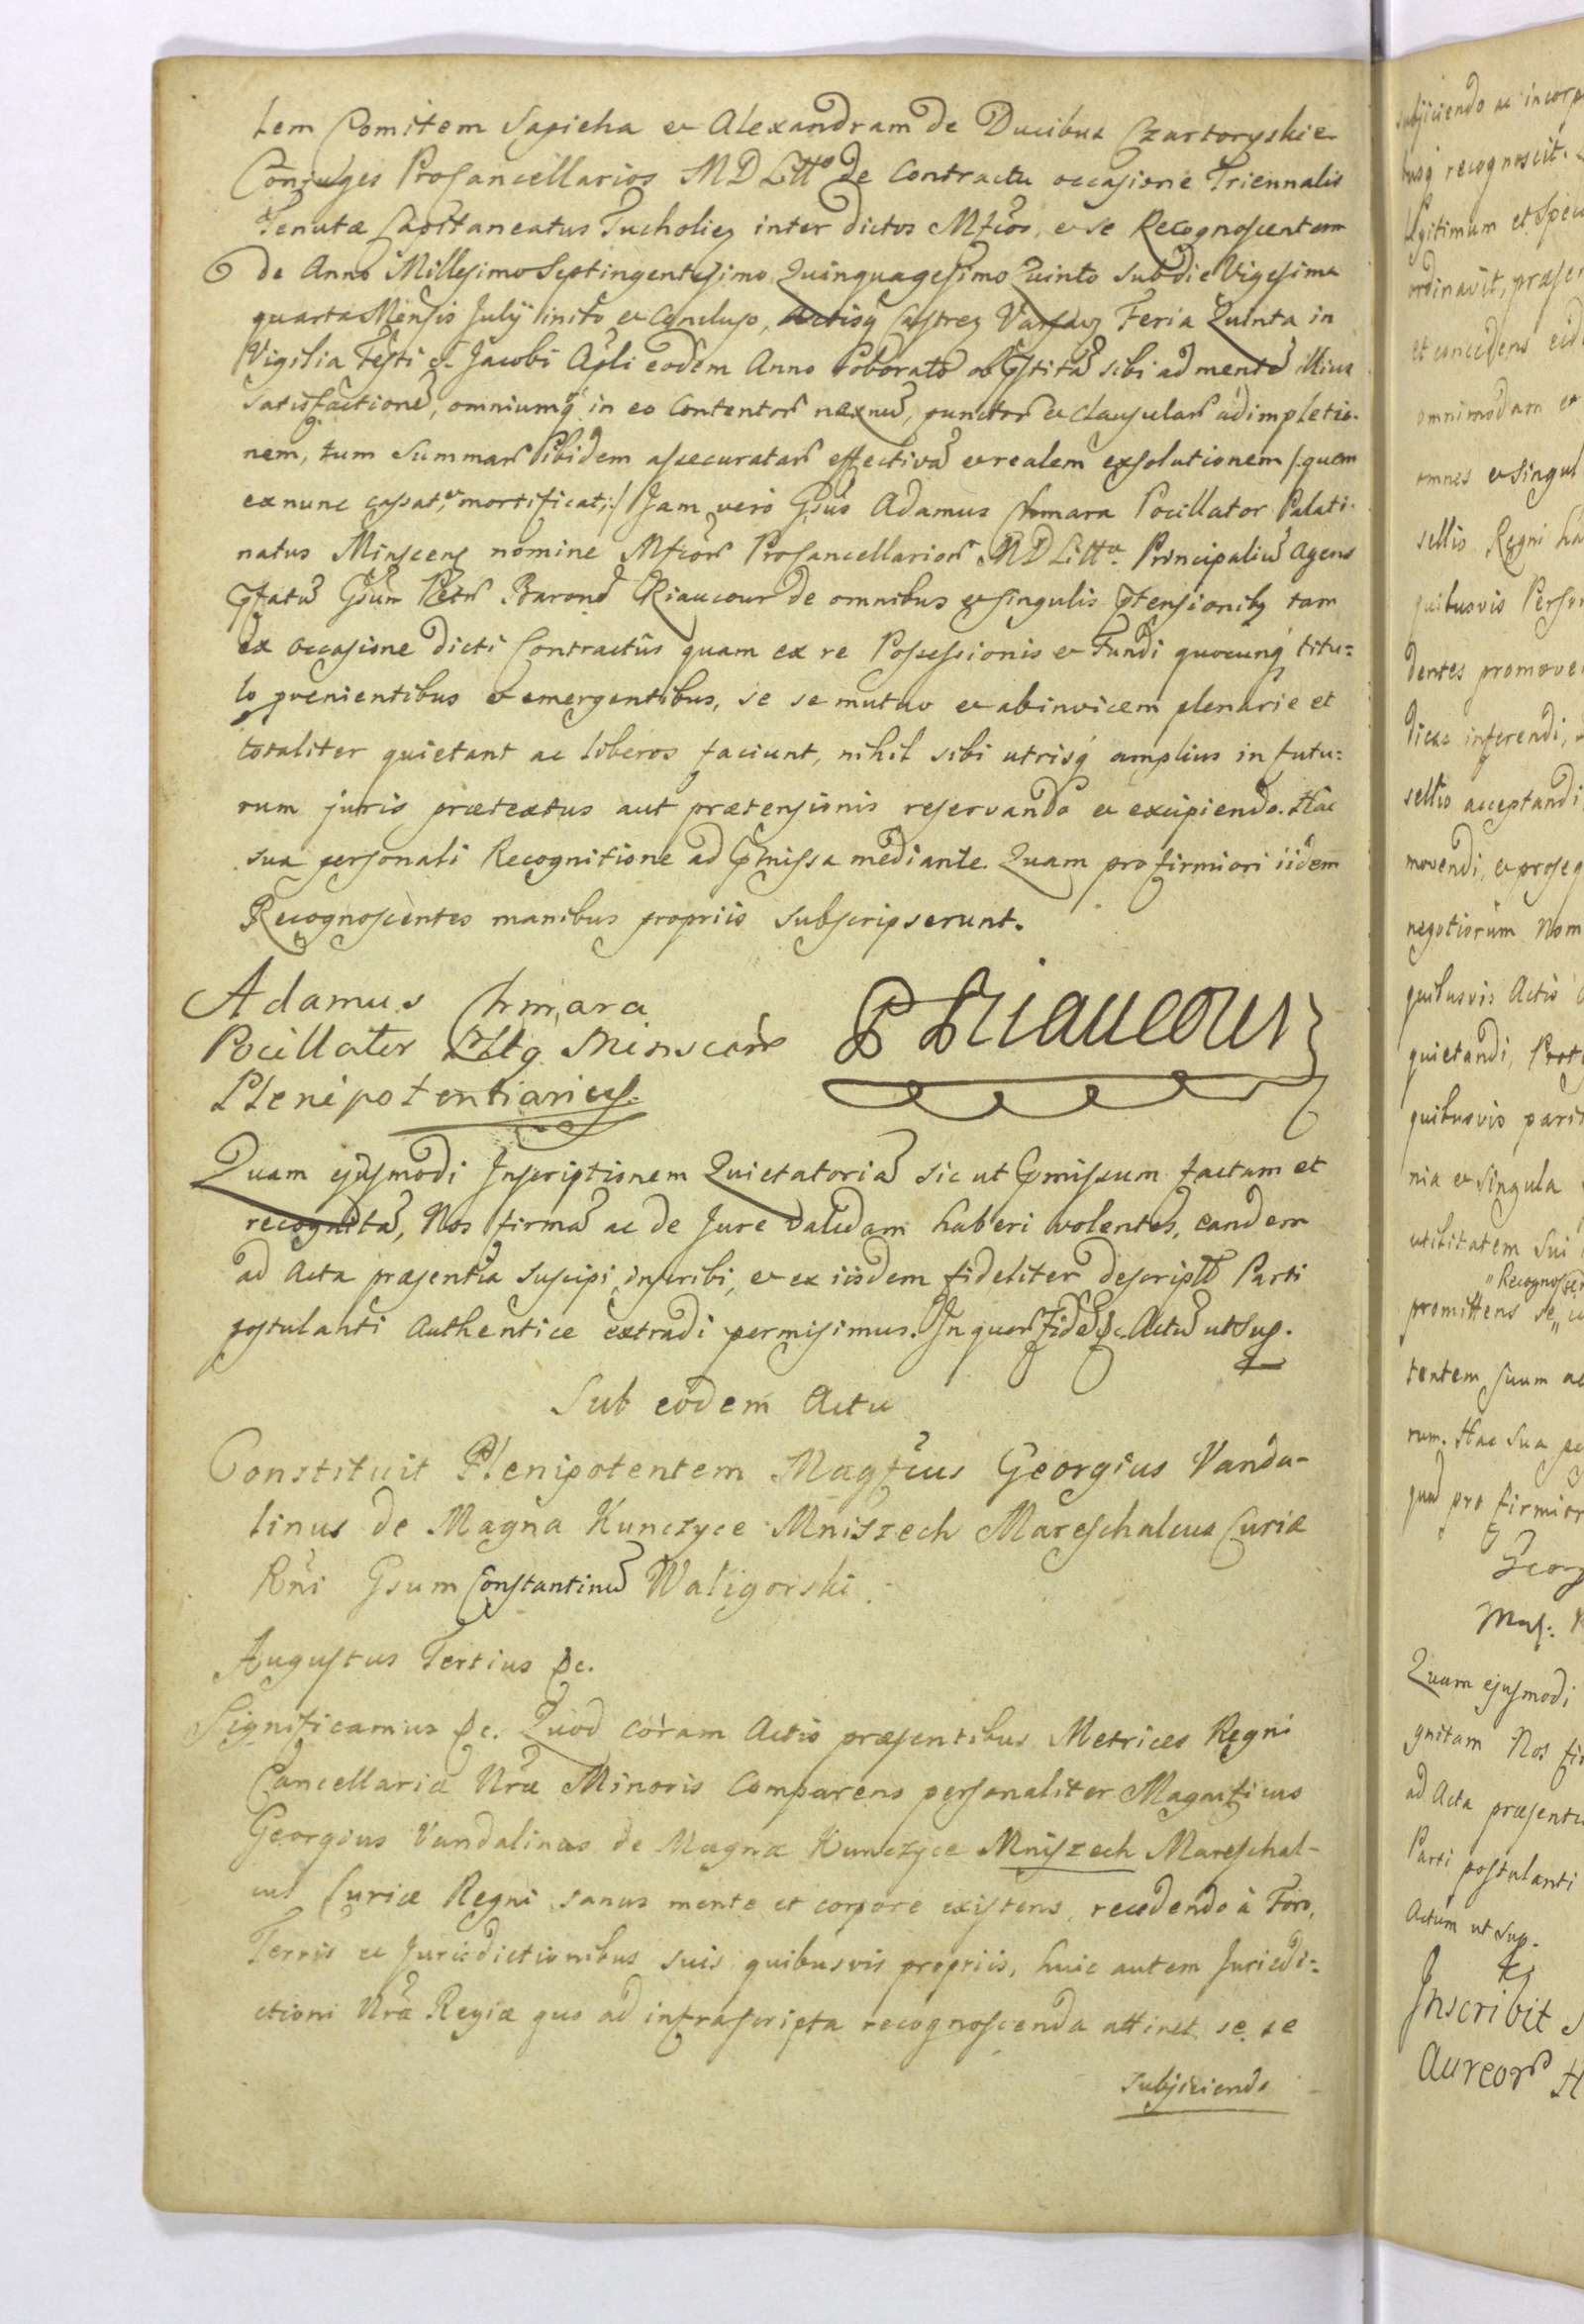 lem Comitem Sapieha et Alexandram de Ducibus Czartoryskie
Conjuges Procancellarios MDLitto de Contractu occasione Triennalis
Tenutæ Capitaneatus Tucholien inter dictos Mfcos, et se Recognoscentem
de Anno Millesimo Septingentesimo Quinquagesimo Quinto sub die Vigesima
quarta Mensis July inito et Concluso, Actisq Castren Varsav Feria Quinta in
Vigilia Festi S. Jacobi Apli eodem Anno roborato ob pstitã sibi ad mentẽ illius
Satisfactionẽ, omniumq in eo Contentor nexuũ, punctor et clausular adimpletio-
nem, tum Summar ibidem assecuratar effectivã et realem exsolutionem /:quem
ex nunc cassat, et mortificat,:/ Jam vero Gsus Adamus Chmara Pocillator Palati-
natus Minscens nomine Mfcor Procancellarior MDLitto. Principaliũ Agens
pfatũ Gsum Petr Baronẽ Riaucour de omnibus et singulis ptensionibq tam
ex occasione dicti Contractûs quam ex re Possessionis et Fundi quocunq titu=
lo pvenientibus et emergentibus, se se mutuo et abinvicem plenarie et
totaliter quietant ac liberos faciunt, nihil sibi utrisq amplius in futu=
rum juris prætextus aut prætensionis reservando et excipiendo. Hac
sua personali Recognitione ad pmissa mediante. Quam pro firmiori iidem
Recognoscentes manibus propriis subscripserunt.
Adamus Chmara
Pocillator Minscen
Plenipotentiarius.
P Riaucour
Quam ejusmodi Inscriptionem Quietatoriã sic ut pmissum factam et
recognitã, Nos firmã ac de Jure validam haberi volentes, eandem
ad Acta præsentia suscipi, inscribi, et ex iisdem fideliter descriptã Parti
postulanti Authentice extradi permisimus. In quor Fidẽ &c. Actũ ut Sup.
Sub eodem Actu
Constituit Plenipotentem Magfcus Georgius Vanda-
linus de Magna Kunczyce Mniszech Mareschalcus Curiæ
Rni Gsum Constantinũ Waligorski
Augustus Tertius &c.
Significamus &c. Quod coram Actis præsentibus Metrices Regni
Cancellariæ Nræ Minoris Comparens personaliter Magnficus
Georgius Vandalinus de Magna Kunczyce Mniszech Mareschal-
cus Curiæ Regni sanus mente et corpore existens, recedendo à Foro,
Terris ac Jurisdictionibus suis quibusvis propriis, huic autem Jurisdi=
ctioni Nræ Regiæ quo ad infrascripta recognoscenda attinet se se
subjiciendo
subjiciendo ac incorp
busq recognoscit.
legitimum et speci
ordinavit, præsen
et concedens eid
omnimodam et
omnes et singul
sellis Regni
quibusvis Person
dentes promove
dicac inferendi,
sellio acceptandi
movendi, et proseq
negotiorum Nom
quibusvis Actis
quietandi,
quibusvis
nia et Singula
utilitatem sui
"Recognosce
promittens se"
tentem suum
rum. Hac sua pe
quã pro firmior
Georg
Quam ejusmodi
gnitam Nos fir
ad Acta præsentia
Parti postulanti
Actum ut Sup.
Inscribit
Aureor